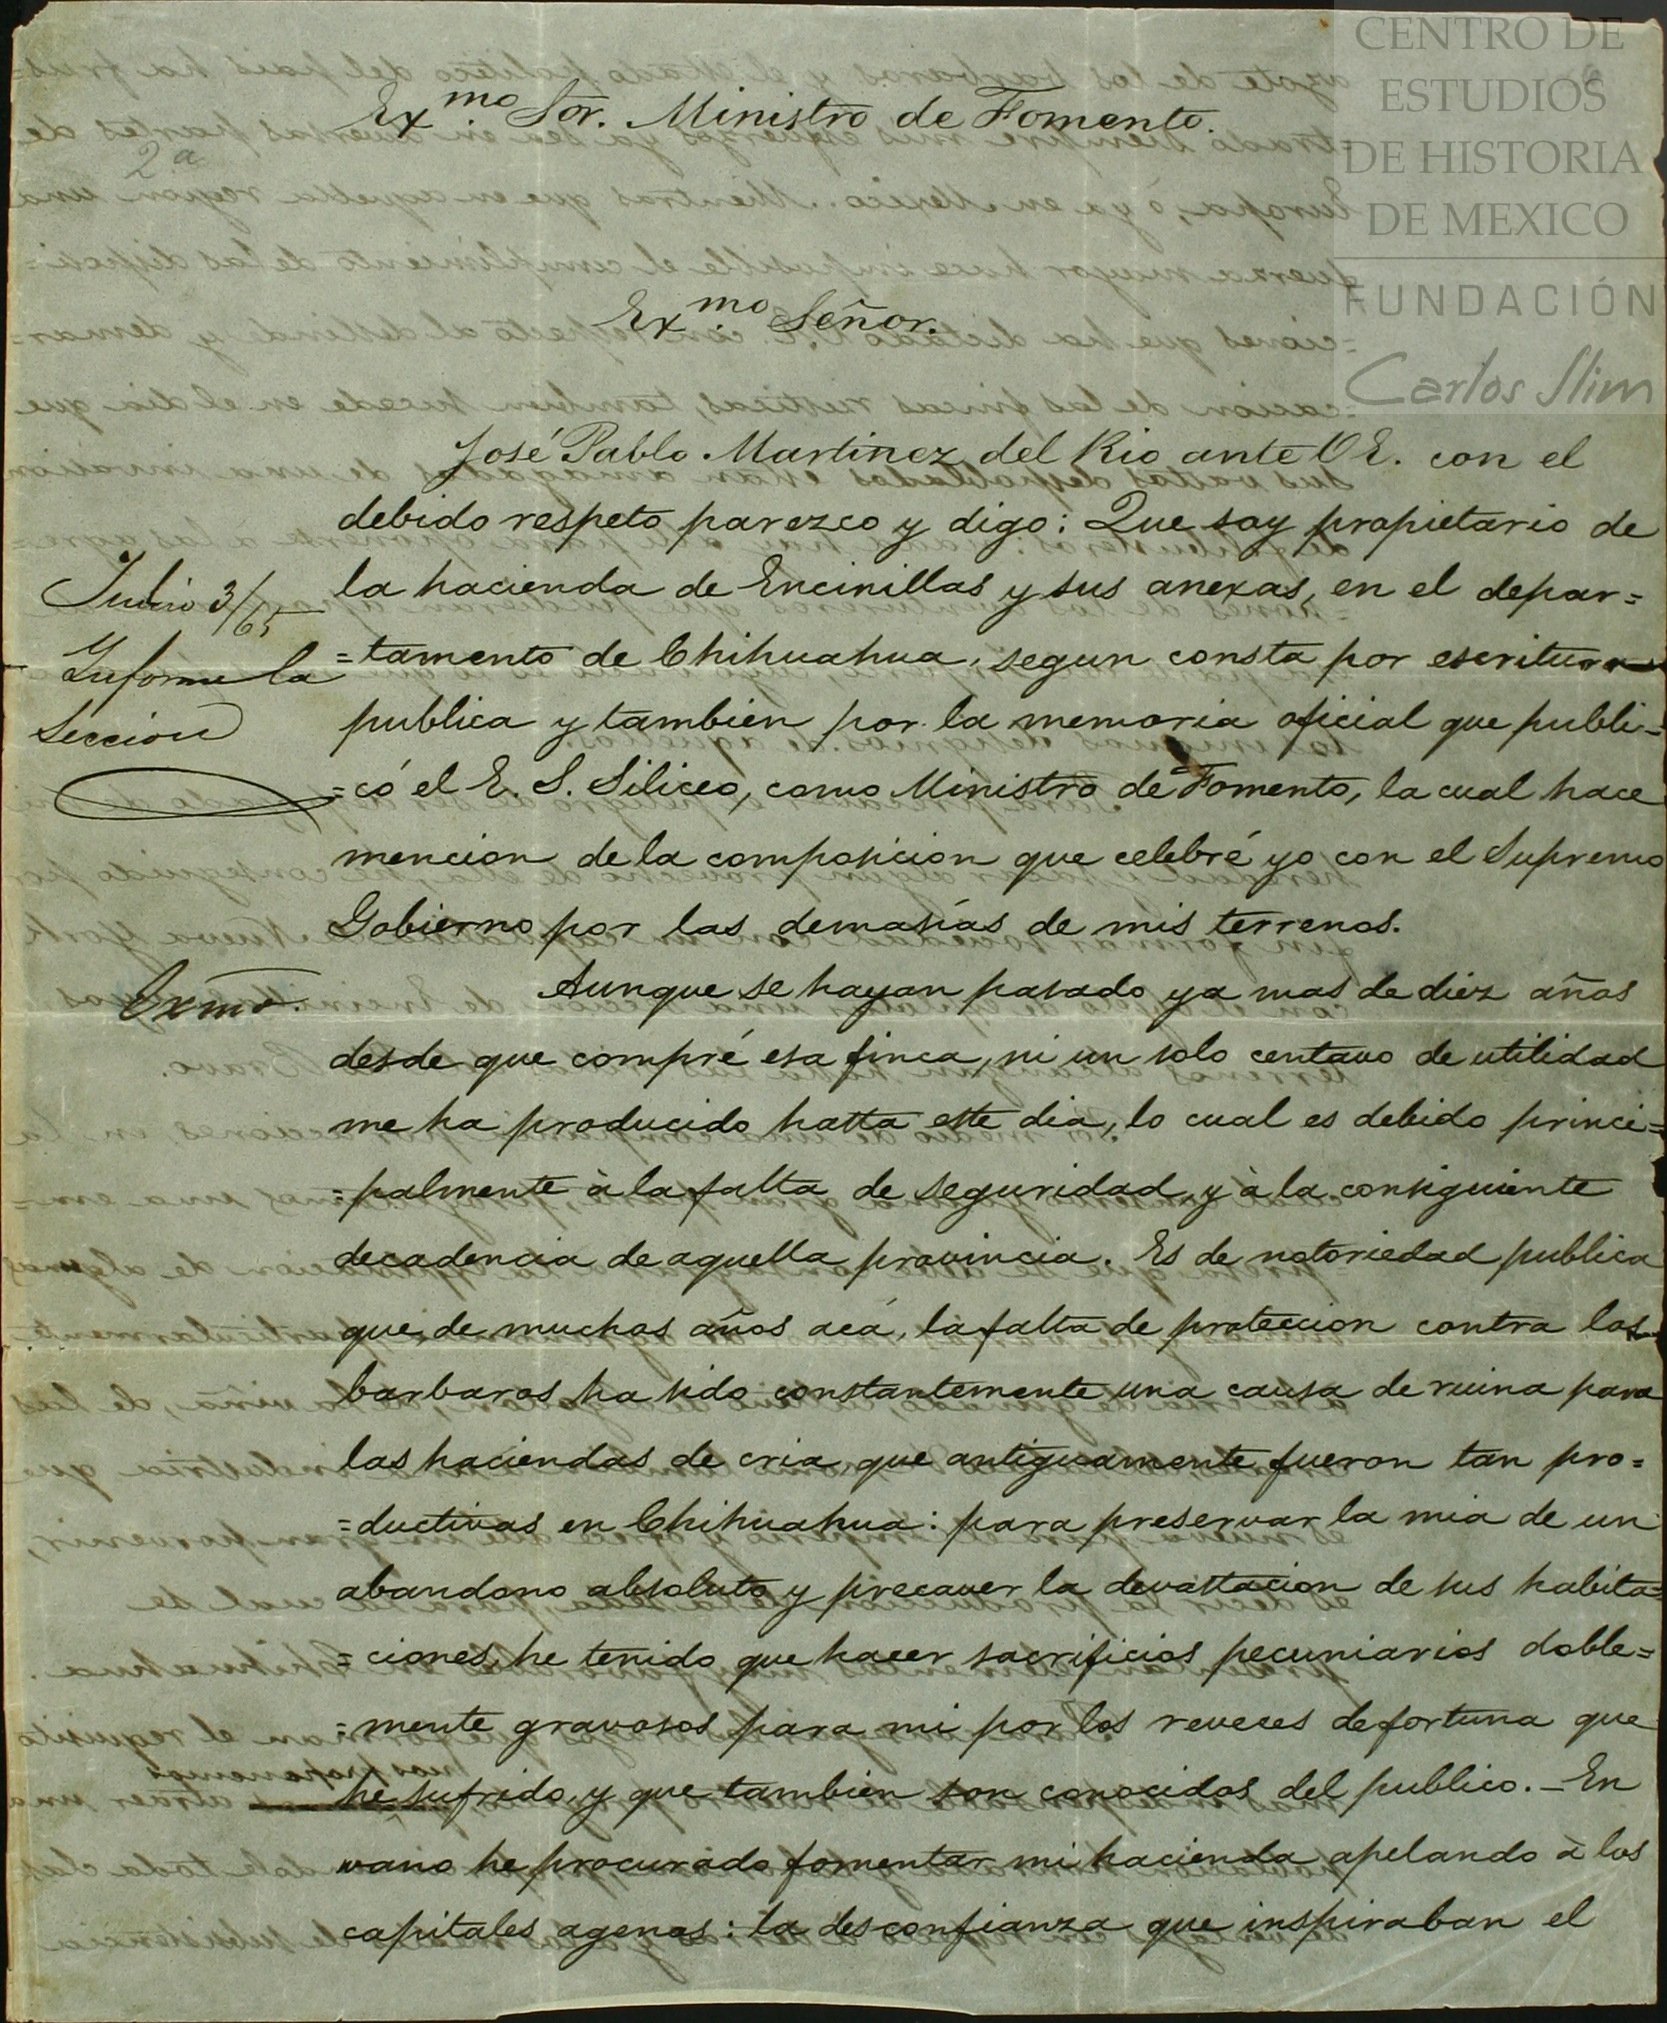 CENTRO DE
ESTUDIOS
DE HISTORIA
DE MEXICO
FUNDACIÓN
Carlos Slim
Ex.mo Sor. Ministro de Fomento.
2.a
Ex.mo Señor.
José Pablo Martinez del Rio ante V E. con el
debido respeto parezco y digo: Que soy propietario de
la hacienda de Encinillas y sus anexas, en el depar=
=tamento de Chihuahua, segun consta por escritura
publica y tambien por la memoria oficial que publi=
=có el E. S. Siliceo, como Ministro de Fomento, la cual hace
mencion de la composicion que celebré yo con el Supremo
Gobierno por las demasías de mis terrenos.
Junio 3/65
Informe la
Seccion
Exmo.
Aunque se hayan pasado ya mas de diez años
desde que compré esa finca, ni un solo centavo de utilidad
me ha producido hasta este dia, lo cual es debido princi=
=palmente à la falta de seguridad, y à la consiguiente
decadencia de aquella provincia. Es de notoriedad publica
que, de muchos años acá, la falta de proteccion contra los
barbaros ha sido constantemente una causa de ruina para
las haciendas de cria que antiguamente fueron tan pro=
=ductivas en Chihuahua: para preservar la mia de un
abandono absoluto y precaver la devastacion de sus habita=
=ciones, he tenido que hacer sacrificios pecuniarios doble=
=mente gravosos para mi por los reveces de fortuna que
he sufrido, y que tambien son conocidos del publico. - En
vano he procurado fomentar mi hacienda apelando à los
capitales agenos: la desconfianza que inspiraban el